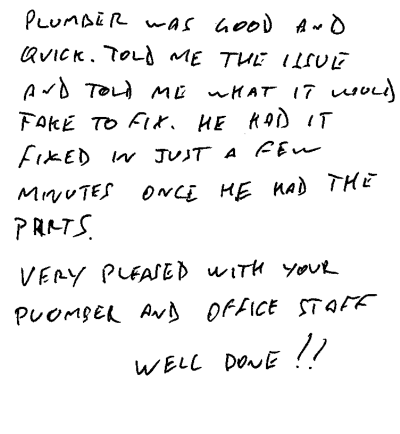 PLUMBER WAS GOOD AND
QUICK. TOLD ME THE ISSUE
AND TOLD ME WHAT IT WOULD
TAKE TO FIX. HE HAD IT
FIXED IN JUST A FEW
MINUTES ONCE HE HAD THE
PARTS.
VERY PLEASED WITH YOUR
PLUMBER AND OFFICE STAFF
WELL DONE!!